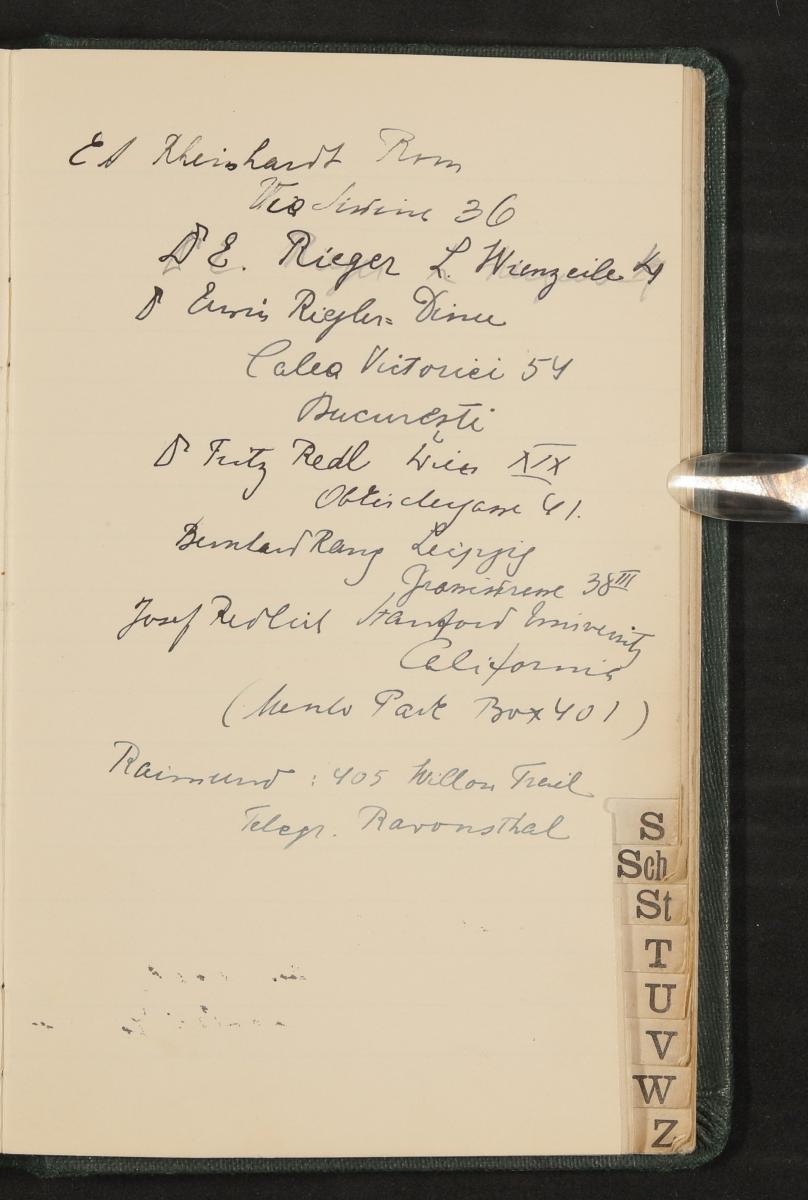 EA Rheinhardt Rom
Via Sistina 36
Dr E. Rieger L. Wienzeile
Dr Erwin Riegler=Dinu
Calea Victoriei 54
București
Dr Fritz Redl Wien XIX
41.
Bernhard Rang Leipzig
38III
Josef Redlich Stanford University
California
(Menlo Park Box 401)
Raimund: 405 Willow Trail
Telegr. Ravonsthal
S
Sch
St
T
U
V
W
Z